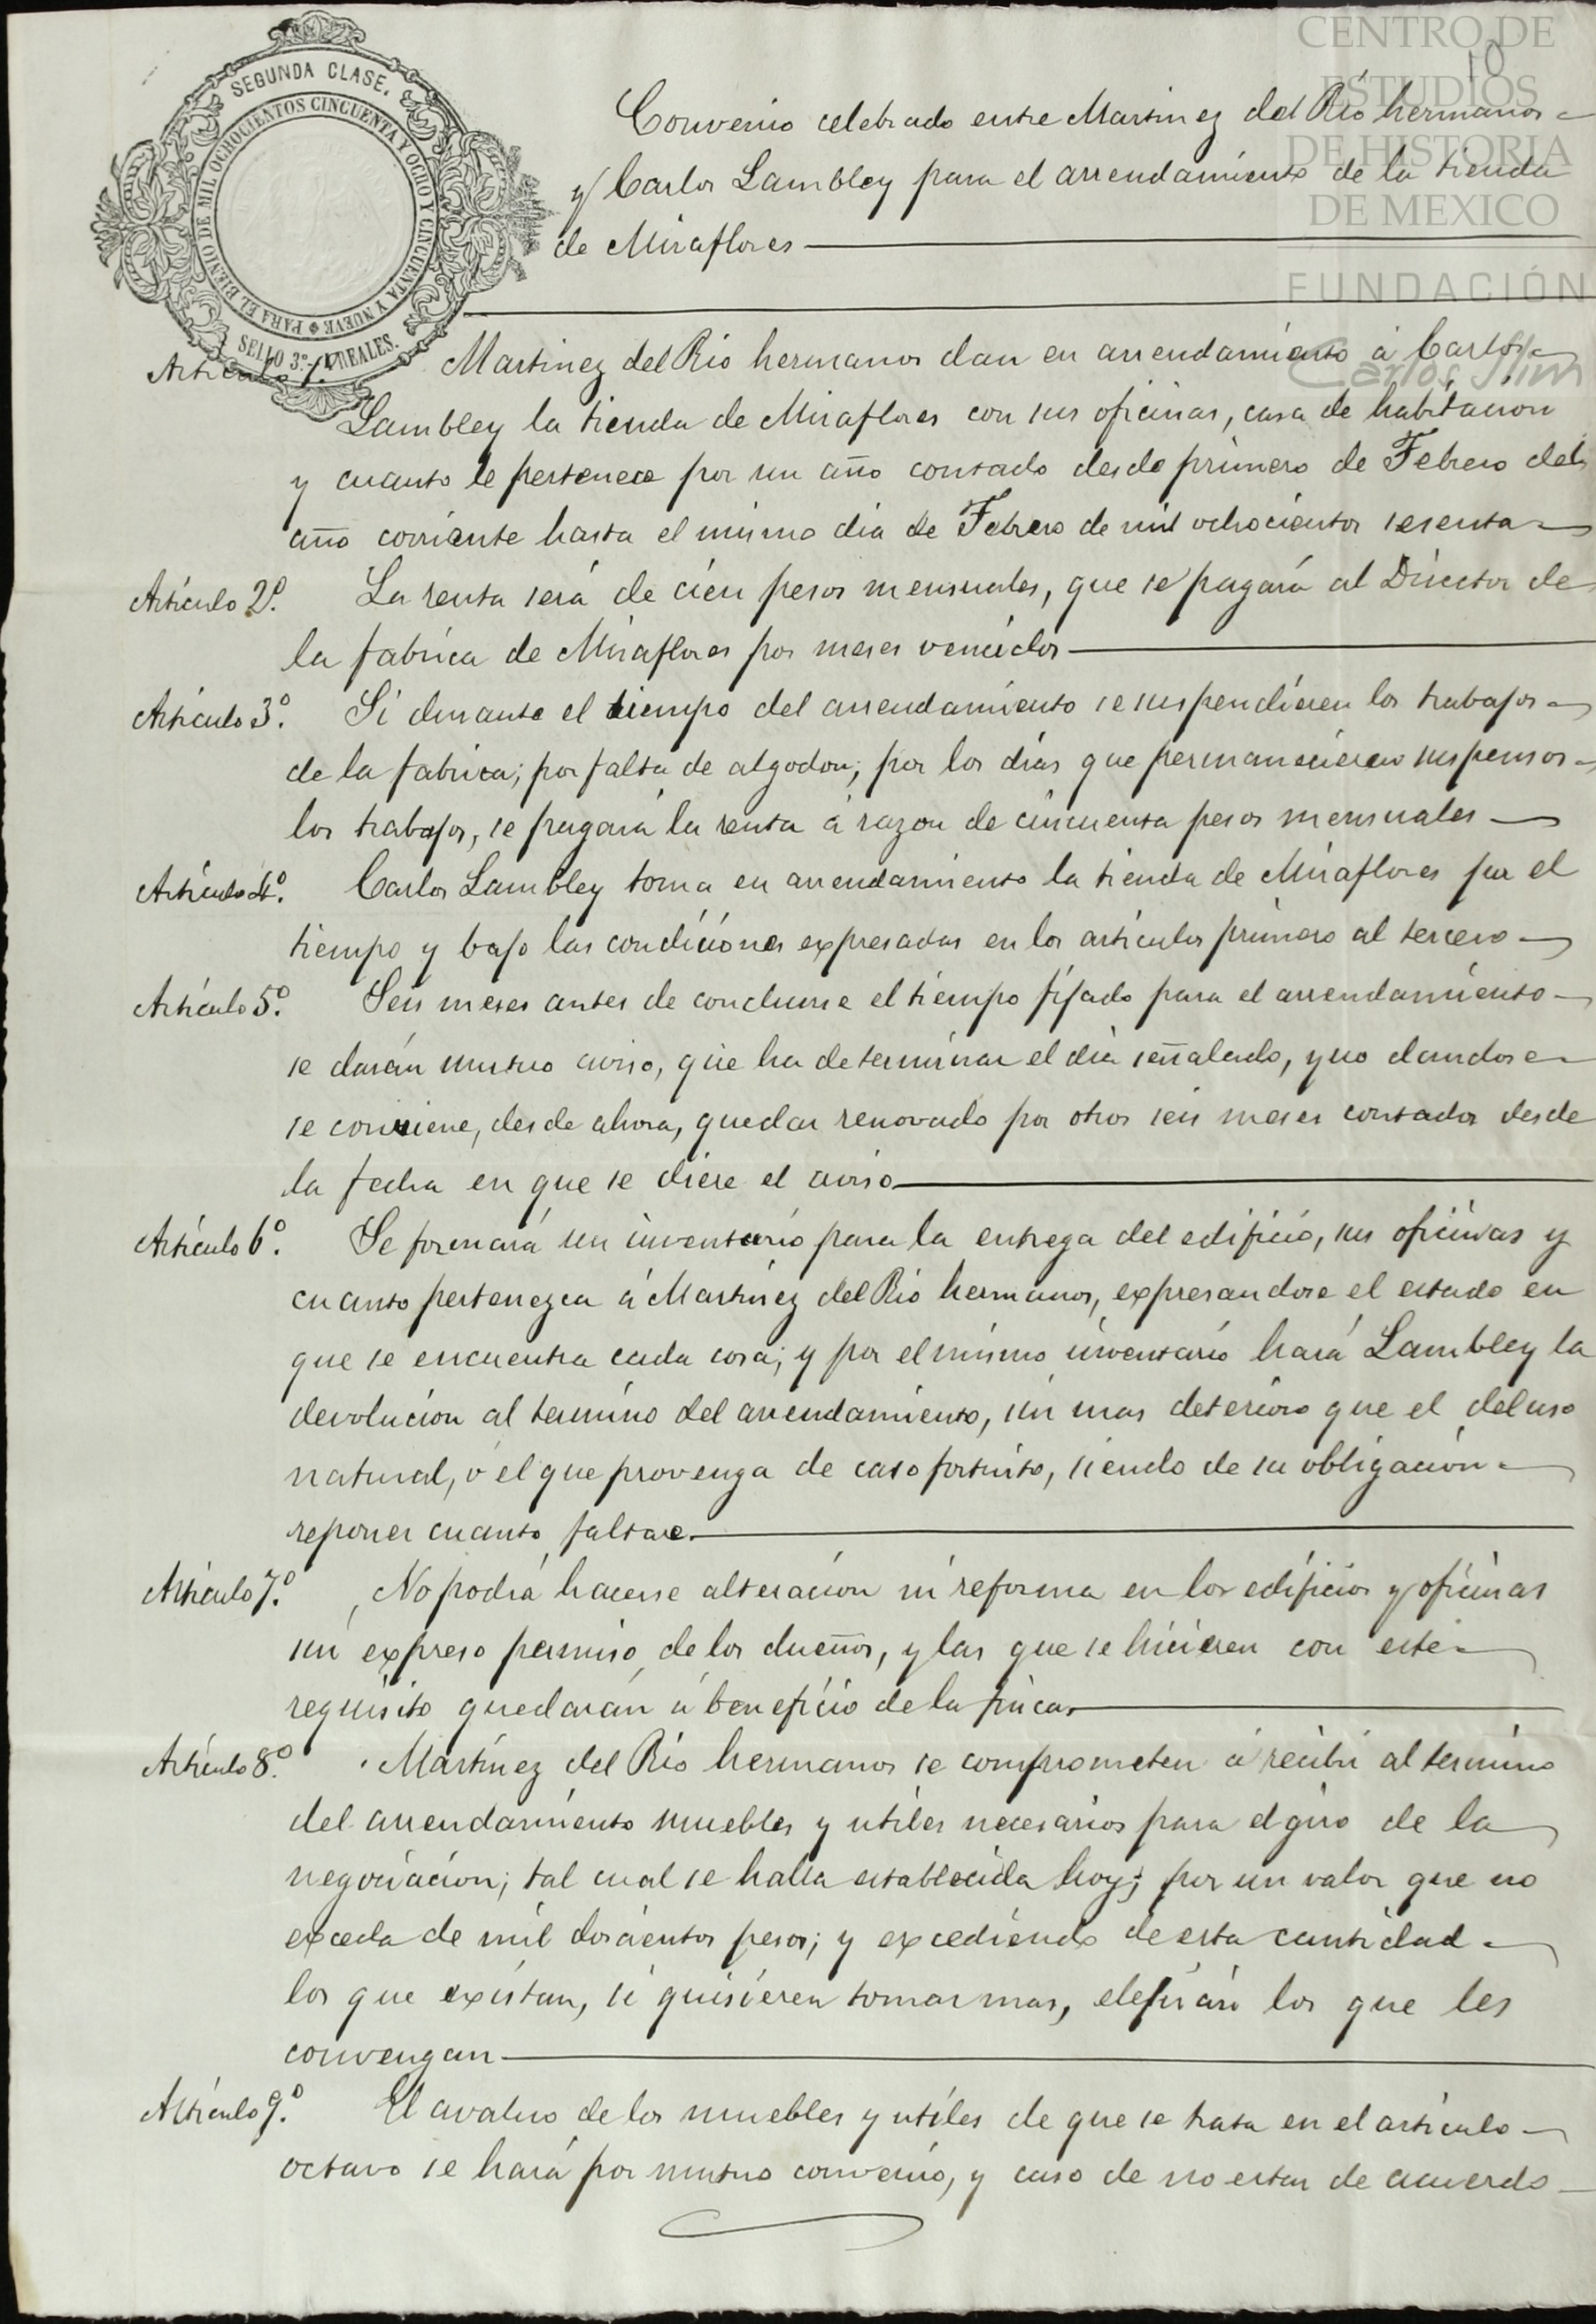 CENTRO DE
ESTUDIOS
DE HISTORIA
DE MEXICO
FUNDACIÓN
Carlos Slim
10
SEGUNDA CLASE.
PARA EL BIENIO DE MIL OCHOCIENTOS CINCUENTA Y OCHO Y CINCUENTA Y NUEVE
SELLO 3º 4 REALES.
Convenio celebrado entre Martinez del Rio hermanos
y Carlos Lambley para el arrendamiento de la tienda
de Miraflores
Articulo 1º. Martinez del Rio hermanos dan en arrendamiento á Carlos
Lambley la tienda de Miraflores con sus oficinas, casa de habitacion
y cuanto le pertenece por un año contado desde primero de Febrero del
año corriente hasta el mismo dia de Febrero de mil ochocientos sesenta
Articulo 2º. La renta será de cien pesos mensuales, que se pagará al Director de
la fabrica de Miraflores por meses vencidos
Articulo 3º. Si durante el tiempo del arrendamiento se suspendieren los trabajos
de la fabrica; por falta de algodon; por los dias que permanecieren suspensos
los trabajos, se pagará la renta á razon de cincuenta pesos mensuales
Articulo 4º. Carlos Lambley toma en arrendamiento la tienda de Miraflores por el
tiempo y bajo las condiciones expresadas en los articulos primero al tercero
Articulo 5º. Seis meses antes de concluirse el tiempo fijado para el arrendamiento
se darán mutuo aviso, que ha de terminar el dia señalado, y no dandose
se conviene, desde ahora, quedar renovado por otros seis meses contados desde
la fecha en que se diere el aviso
Articulo 6º. Se formará un inventario para la entrega del edificio, sus oficinas y
cuanto pertenezca á Martinez del Rio hermanos, expresandose el estado en
que se encuentra cada cosa; y por el mismo inventario hará Lambley la
devolucion al termino del arrendamiento, sin mas deterioro que el del uso
natural, ó el que provenga de caso fortuito, siendo de su obligacion
reponer cuanto faltare.
Articulo 7º. No podrá hacerse alteracion ni reforma en los edificios y oficinas
sin expreso permiso de los dueños, y las que se hicieren con este
requisito quedarán á beneficio de la finca.
Articulo 8º. Martinez del Rio hermanos se comprometen á recibir al termino
del arrendamiento muebles y utiles necesarios para el giro de la
negociacion; tal cual se halla establecida hoy; por un valor que no
exceda de mil doscientos pesos; y excediendo de esta cantidad
los que existan, si quisieren tomar mas, elejirán los que les
convengan
Articulo 9º. El avaluo de los muebles y utiles de que se trata en el articulo
octavo se hará por mutuo convenio, y caso de no estar de acuerdo